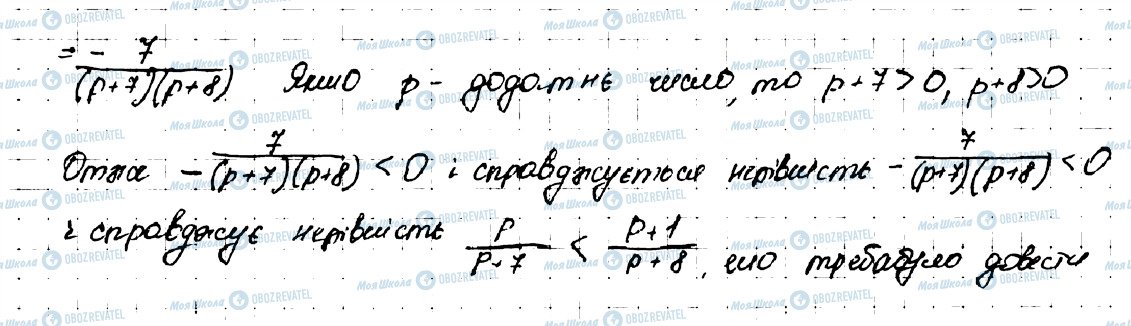 = - 7/((p+7)(p+8)) Якщо p - додатнє число, то p+7>0, p+8>0
Отже - 7/((p+7)(p+8)) < 0 і справджується нерівність - 7/((p+7)(p+8)) < 0
і справджує нерівність p/(p+7) < (p+1)/(p+8), що требабуло довести